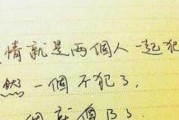 情就是兩個人一起犯
然一個不犯了，
個就